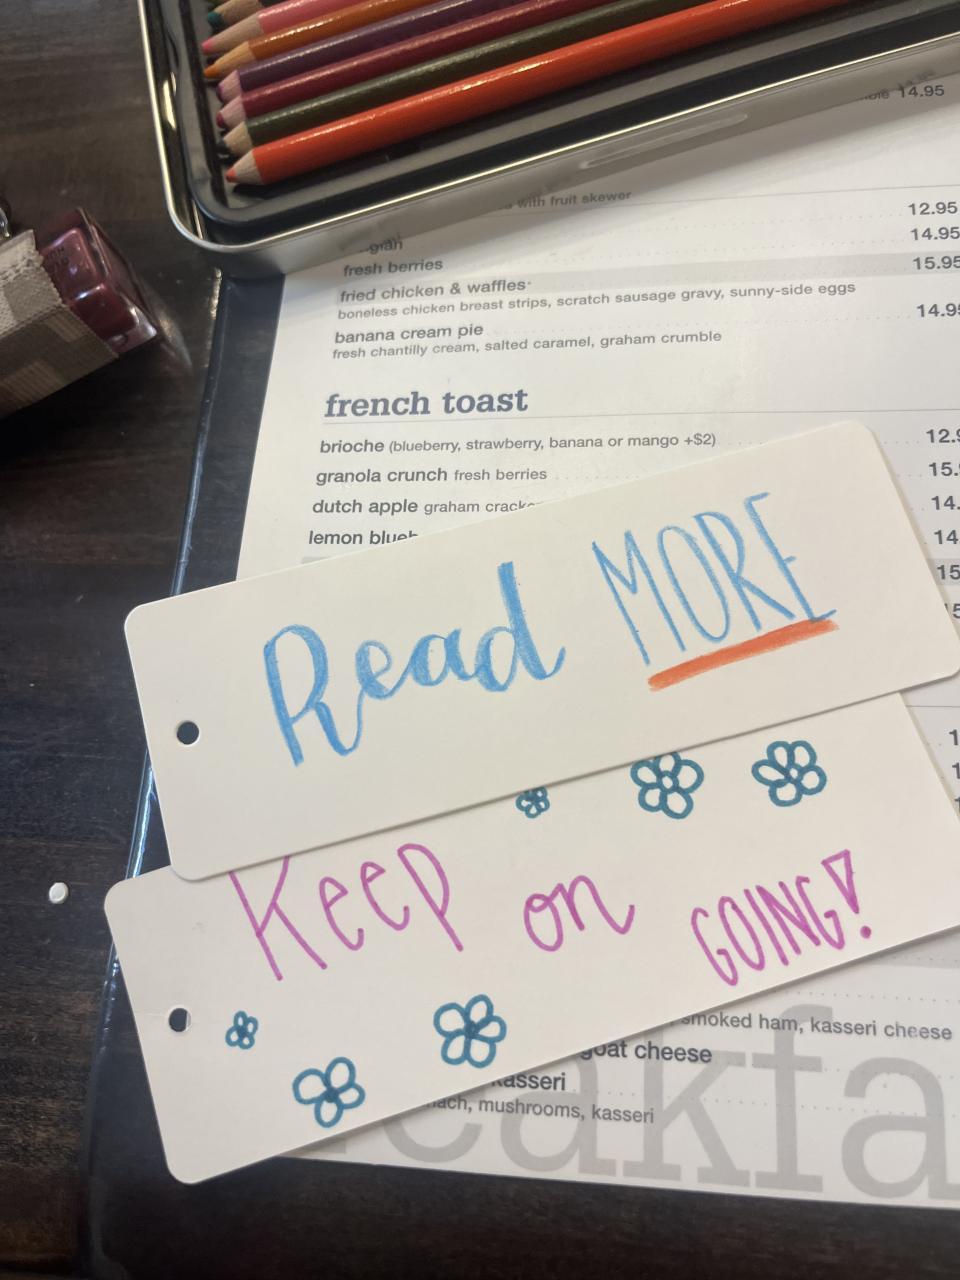 14.95
with fruit skewer
12.95
14.95
fresh berries
15.95
fried chicken & waffles*
boneless chicken breast strips, scratch sausage gravy, sunny-side eggs
banana cream pie
fresh chantilly cream, salted caramel, graham crumble
french toast
brioche (blueberry, strawberry, banana or mango +$2)
granola crunch fresh berries
dutch apple graham
lemon
Read MORE
Keep on GOING!
smoked ham, kasseri cheese
goat cheese
kasseri
mushrooms, kasseri